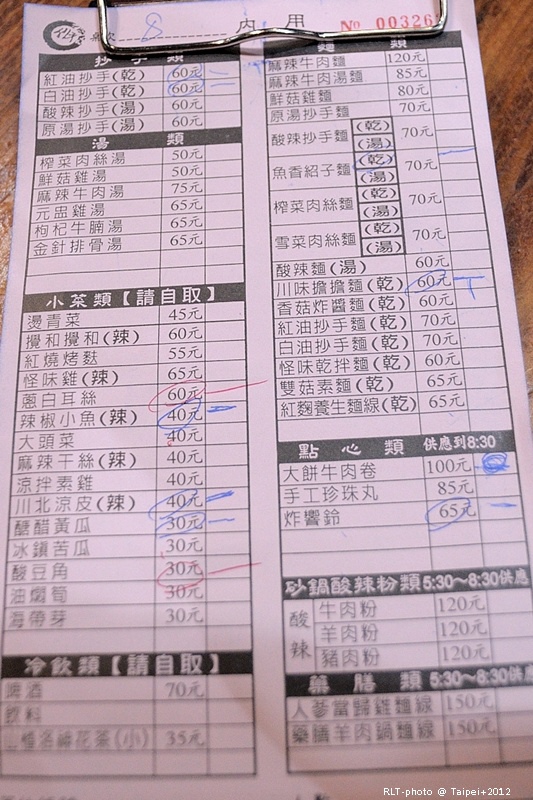 內 用
№ 00326
抄 手 類
紅油抄手(乾) 60元
白油抄手(乾) 60元
酸辣抄手(湯) 60元
原湯抄手(湯) 60元
湯 類
榨菜肉絲湯 50元
鮮菇雞湯 50元
麻辣牛肉湯 75元
元盅雞湯 65元
枸杞牛腩湯 65元
金針排骨湯 65元
小菜類【請自取】
燙青菜 45元
攪和攪和(辣) 60元
紅燒烤麩 55元
怪味雞(辣) 65元
蔥白耳絲 60元
辣椒小魚(辣) 40元
大頭菜 40元
麻辣干絲(辣) 40元
涼拌素雞 40元
川北涼皮(辣) 40元
醣醋黃瓜 30元
冰鎮苦瓜 30元
酸豆角 30元
油燜筍 30元
海帶芽 30元
冷飲類【請自取】
啤酒 70元
飲料
山楂洛神花茶(小) 35元
麵 類
麻辣牛肉麵 120元
麻辣牛肉湯麵 85元
鮮菇雞麵 80元
原湯抄手麵 70元
酸辣抄手麵 (乾) (湯) 70元
魚香紹子麵 (乾) (湯) 70元
榨菜肉絲麵 (乾) (湯) 70元
雪菜肉絲麵 (乾) (湯) 70元
酸辣麵(湯) 60元
川味擔擔麵(乾) 60元
香菇炸醬麵(乾) 60元
紅油抄手麵(乾) 70元
白油抄手麵(乾) 70元
怪味乾拌麵(乾) 60元
雙菇素麵(乾) 65元
紅麴養生麵線(乾) 65元
點 心 類 供應到8:30
大餅牛肉卷 100元
手工珍珠丸 85元
炸響鈴 65元
砂鍋酸辣粉類5:30~8:30供應
酸辣 牛肉粉 120元
羊肉粉 120元
豬肉粉 120元
藥 膳 類 5:30~8:30供應
人蔘當歸雞麵線 150元
藥膳羊肉鍋麵線 150元
RLT-photo @ Taipei+2012